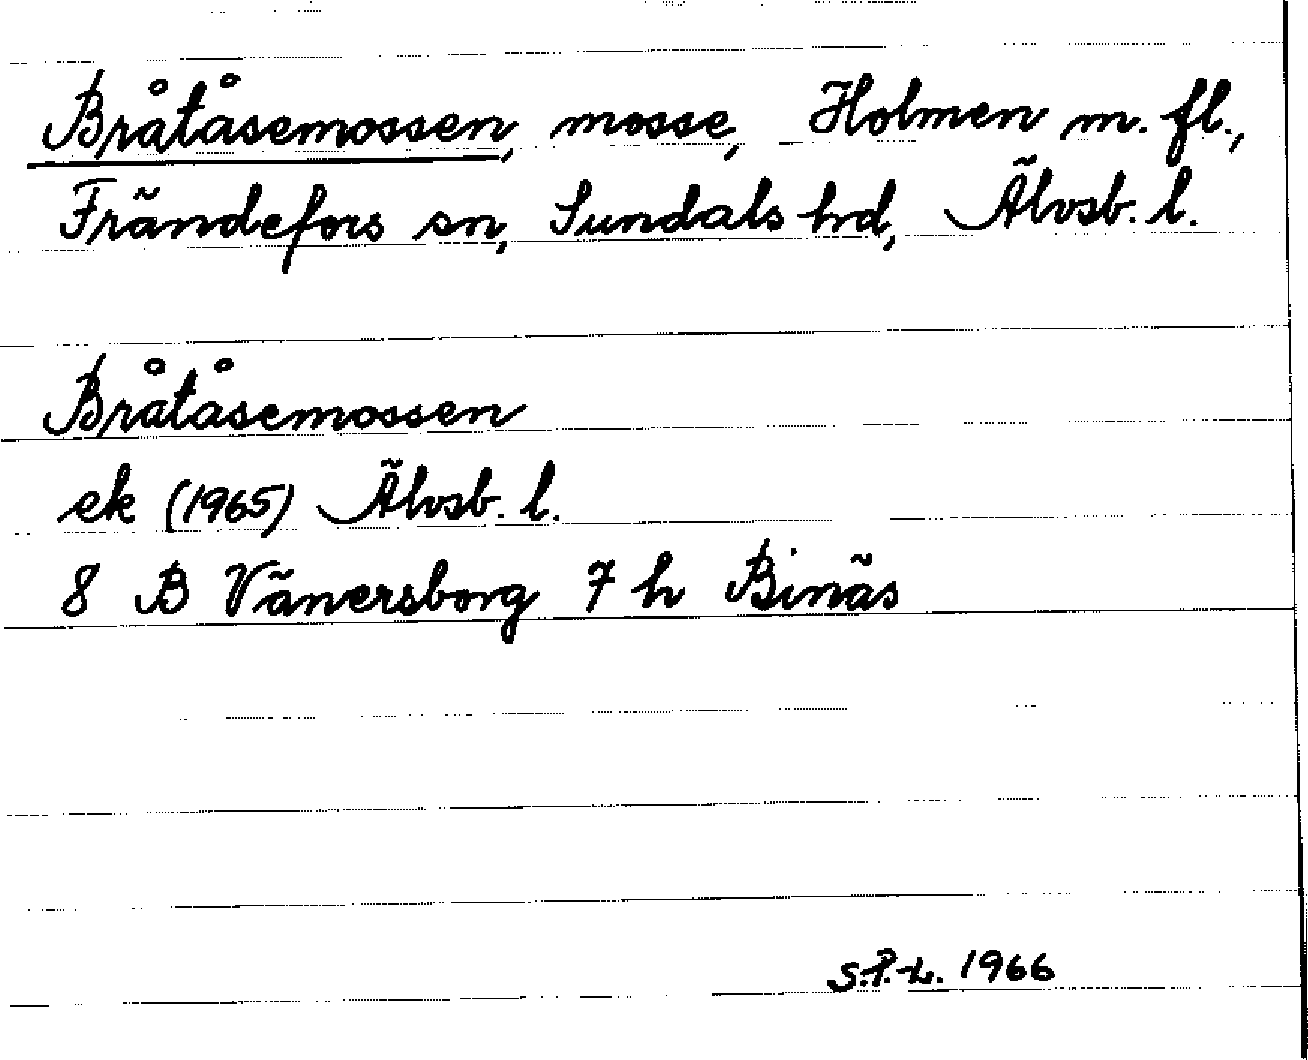 Bråtåsemossen, mosse, Holmen m. fl.,
Frändefors sn, Sundals hd, Älvsb. l.
Bråtåsemossen
ek (1965) Älvsb. l.
8 B Vänersborg 7 h Binäs
S.P.-L. 1966